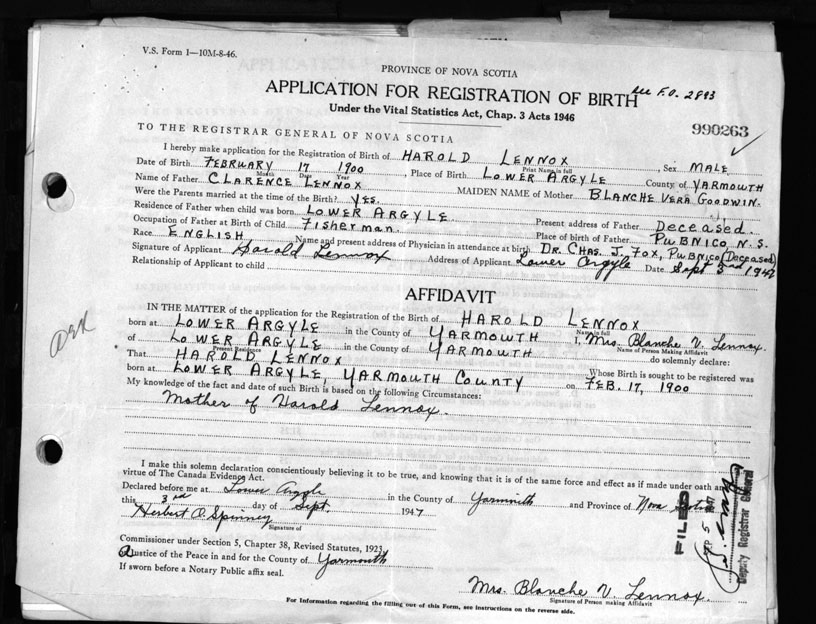 V.S. Form 1—10M-8-46.
PROVINCE OF NOVA SCOTIA
APPLICATION FOR REGISTRATION OF BIRTH
See F.O. 2893
Under the Vital Statistics Act, Chap. 3 Acts 1946
990263
TO THE REGISTRAR GENERAL OF NOVA SCOTIA
I hereby make application for the Registration of Birth of HAROLD LENNOX, Sex MALE
Print Name in full
Date of Birth FEBRUARY 17 1900, Place of Birth LOWER ARGYLE County of YARMOUTH
Month Date Year
Name of Father CLARENCE LENNOX MAIDEN NAME of Mother BLANCHE VERA GOODWIN.
Were the Parents married at the time of the Birth? YES.
Residence of Father when child was born LOWER ARGYLE. Present address of Father Deceased.
Occupation of Father at Birth of Child Fisherman. Place of birth of Father PUBNICO, N.S.
Race ENGLISH Name and present address of Physician in attendance at birth DR. CHAS. J. FOX, PUBNICO (Deceased)
Signature of Applicant Harold Lennox Address of Applicant Lower Argyle Date Sept 3rd 1947
Relationship of Applicant to child
AFFIDAVIT
IN THE MATTER of the application for the Registration of the Birth of HAROLD LENNOX
Name in full
born at LOWER ARGYLE in the County of YARMOUTH I, Mrs. Blanche V. Lennox.
Name of Person Making Affidavit
of LOWER ARGYLE in the County of YARMOUTH do solemnly declare:
Present Residence
That HAROLD LENNOX Whose Birth is sought to be registered was
born at LOWER ARGYLE, YARMOUTH COUNTY on FEB. 17, 1900
My knowledge of the fact and date of such Birth is based on the following Circumstances:
Mother of Harold Lennox.
I make this solemn declaration conscientiously believing it to be true, and knowing that it is of the same force and effect as if made under oath and
virtue of The Canada Evidence Act.
Declared before me at Lower Argyle in the County of Yarmouth and Province of Nova Scotia
this 3rd day of Sept. 1947
Herbert A. Spinney
Signature of
Commissioner under Section 5, Chapter 38, Revised Statutes, 1923
Justice of the Peace in and for the County of Yarmouth
If sworn before a Notary Public affix seal.
FILED
SEP 5 1947
Deputy Registrar General
Mrs. Blanche V. Lennox.
Signature of Person making Affidavit
For Information regarding the filling out of this Form, see instructions on the reverse side.